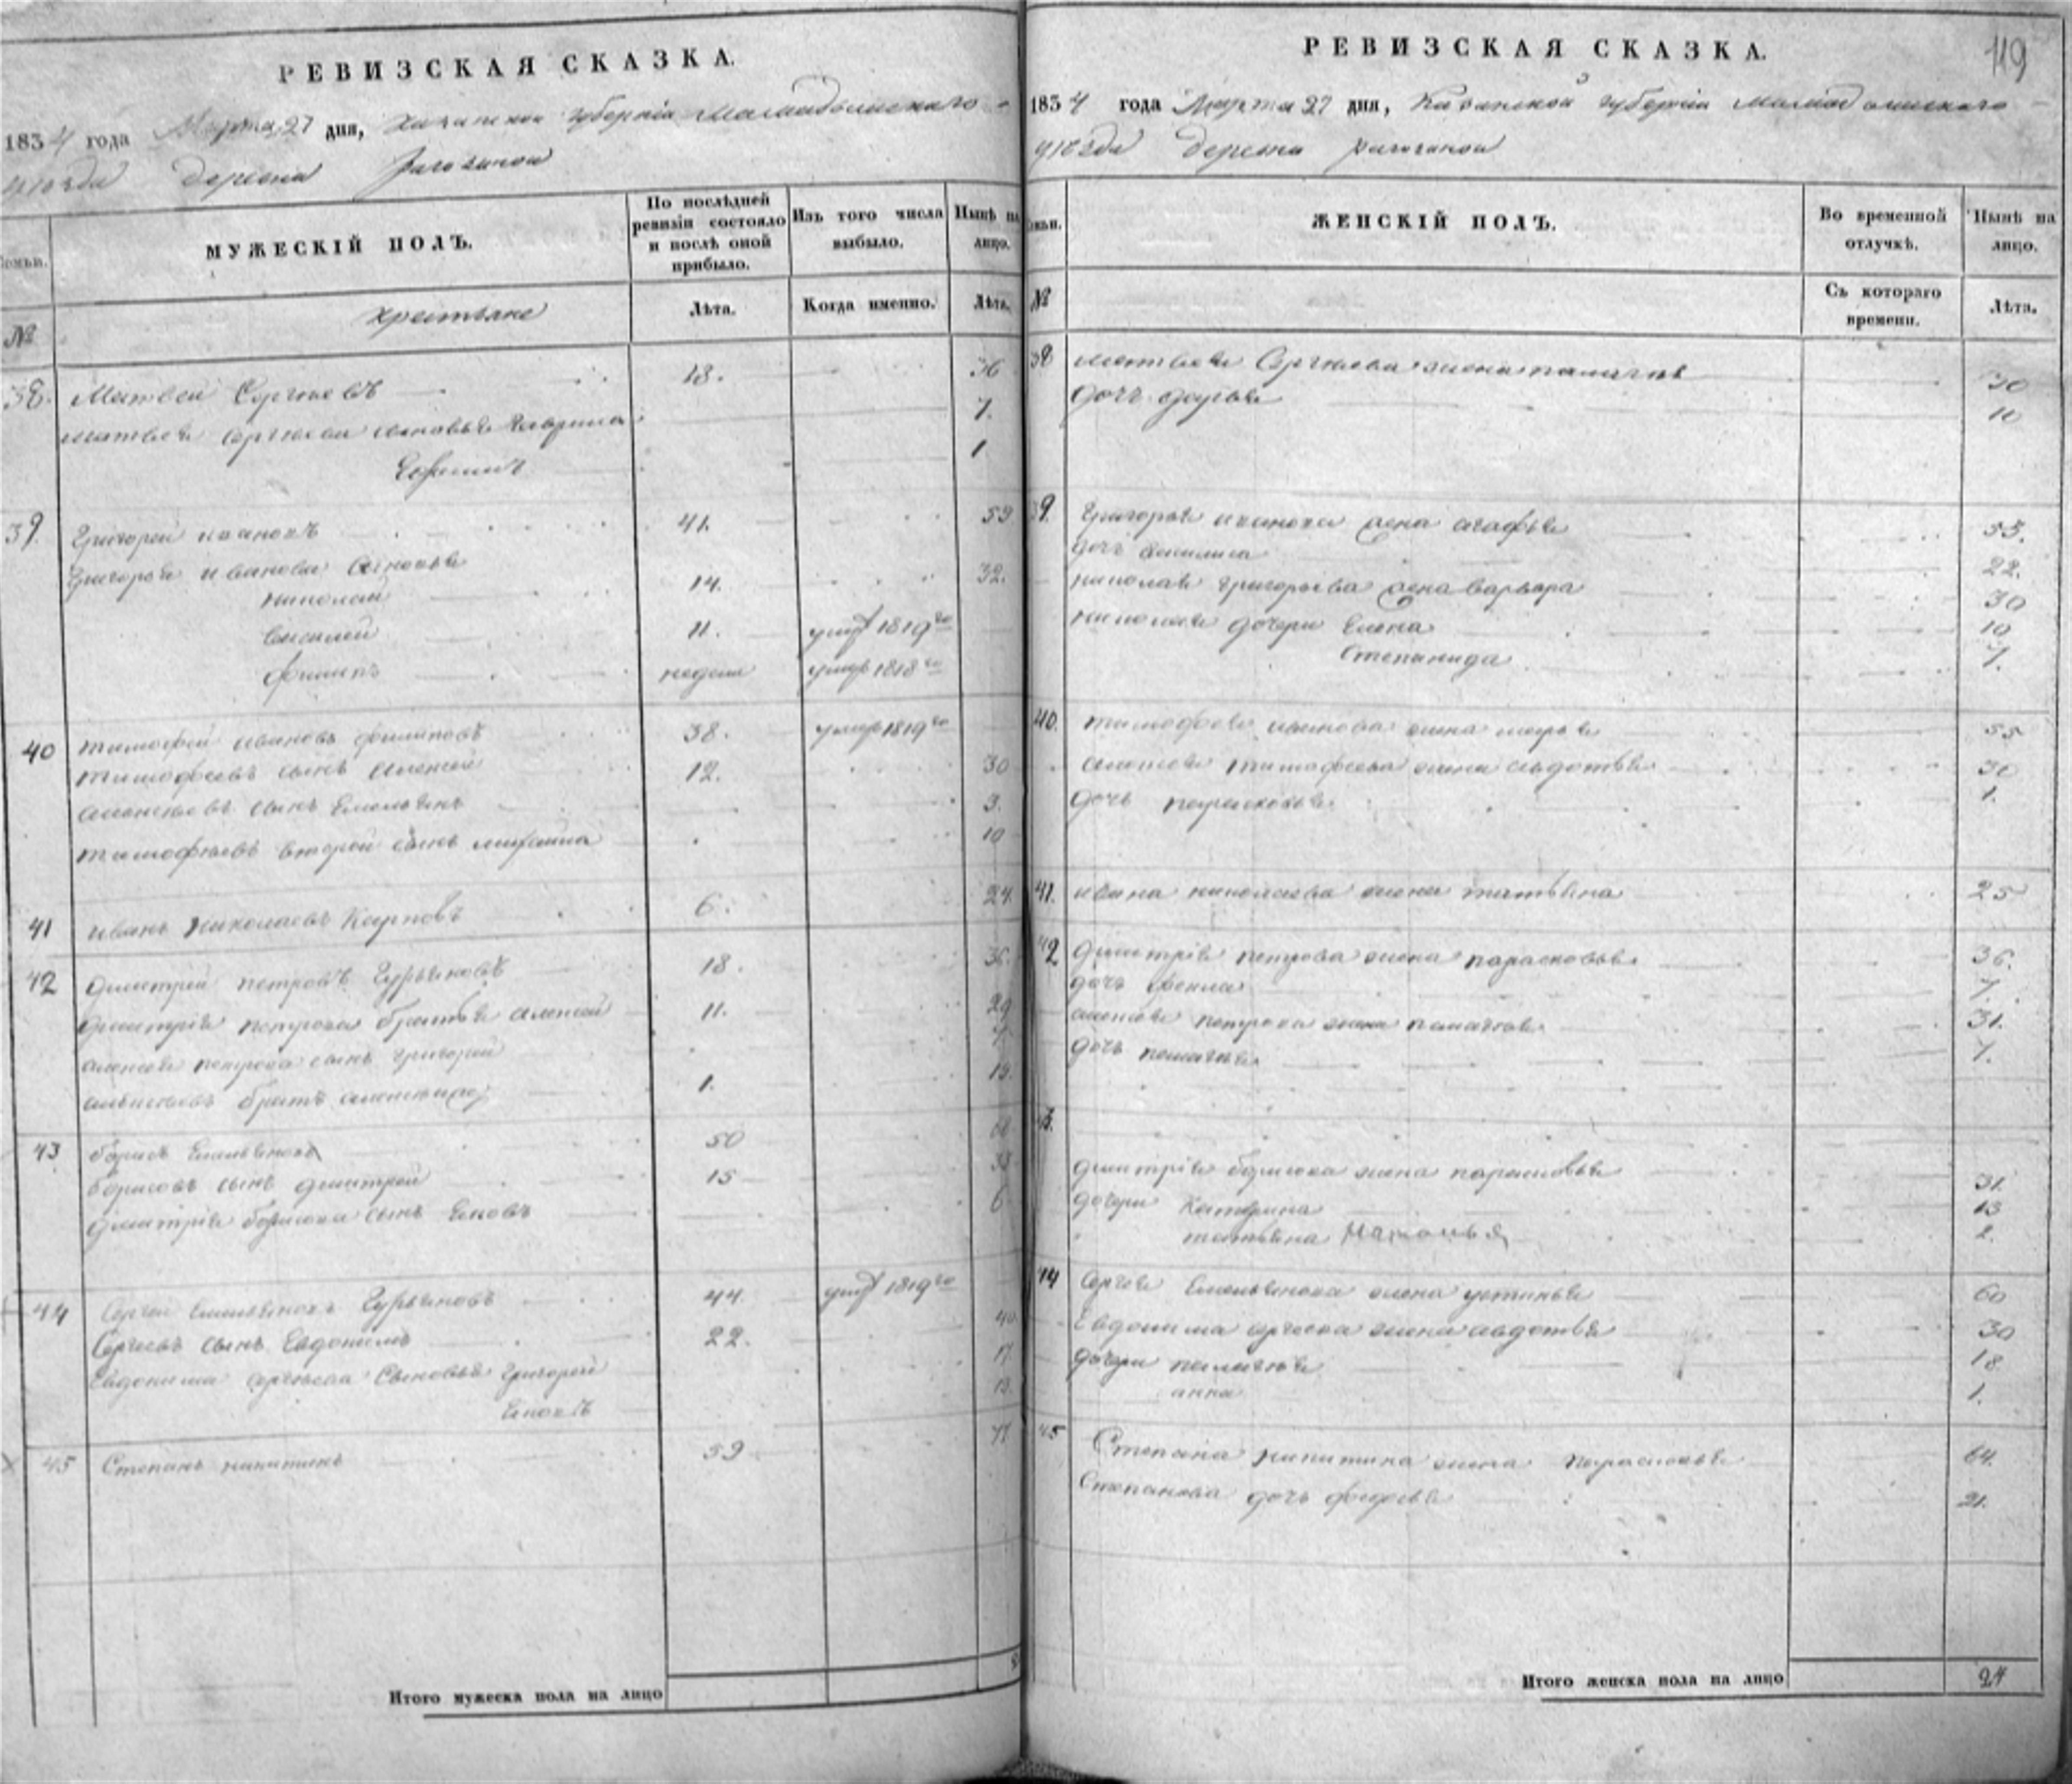 РЕВИЗСКАЯ СКАЗКА.
1834 года Марта 27 дня, Казанской губернiи Мамадышскаго
уѣзда деревни
Семьи.
МУЖЕСКIЙ ПОЛЪ.
По послѣдней ревизiи состояло и послѣ оной прибыло.
Изъ того числа выбыло.
Нынѣ на лицо.
№
крестьяне
Лѣта.
Когда именно.
Лѣта.
38. Матвей Сергѣевъ 18. 36
Матвея Сергѣева сыновья Гаврила 7.
Ефимъ 1
39. Григорей Ивановъ 41. 59
Григорья Иванова сыновья
Николай 14. 32.
Василей 11. умер 1819го
Филипъ недели умер 1818го
40 Тимофей Ивановъ Филиповъ 38. умер 1819го
Тимофеевъ сынъ Алексей 12. 30
Алексѣевъ сынъ Емельянъ 3.
Тимофѣевъ второй сынъ Михайла 19
41 Иванъ Николаевъ Карповъ 6. 24.
42 Дмитрей Петровъ Гурьяновъ 18. 36.
Дмитрiя Петрова братья Алексей 11. 29
Алексея Петрова сынъ Григорей 7
братъ 1. 19.
43 Борисъ Емельяновъ 50 68
Борисовъ сынъ Дмитрей 15 33
Дмитрiя Борисова сынъ Яковъ 6
44 Сергей Емельяновъ Гурьяновъ 44. умер 1819го
Сергѣевъ сынъ Евдокимъ 22. 40
Евдокима Сергѣева сыновья Григорей 17
13.
45 Степанъ Никитинъ 59 77
Итого мужеска пола на лицо
РЕВИЗСКАЯ СКАЗКА.
119
1834 года Марта 27 дня, Казанской губернiи Мамадышскаго
уѣзда деревни
Семьи.
ЖЕНСКIЙ ПОЛЪ.
Во временной отлучкѣ.
Нынѣ на лицо.
№
Съ котораго времени.
Лѣта.
38 Матвея Сергѣева жена Палагея 30
дочь Дарья 10
39. Григорья Иванова жена Агафья 55.
дочь Василиса 22.
Николая Григорьева жена Варвара 30
Николая дочери Елена 10
Степанида 7.
40. Тимофея Иванова жена Марья 55
Алексея Тимофеева жена Авдотья 30
дочь Парасковья 1.
41. Ивана Николаева жена Татьяна 25
42 Дмитрiя Петрова жена Парасковья 36.
дочь Фекла 7.
Алексея Петрова жена Палагея 31.
дочь Палагея 7.
43.
Дмитрiя Борисова жена Парасковья 31
дочери Катерина 13
Татьяна Наталья 2.
44 Сергея Емельянова жена Устинья 60
Евдокима Сергеева жена Авдотья 30
дочери Палагея 18
Анна 1.
45 Степана Никитина жена Парасковья 64.
Степанова дочь Федосья 21.
Итого женска пола на лицо 24